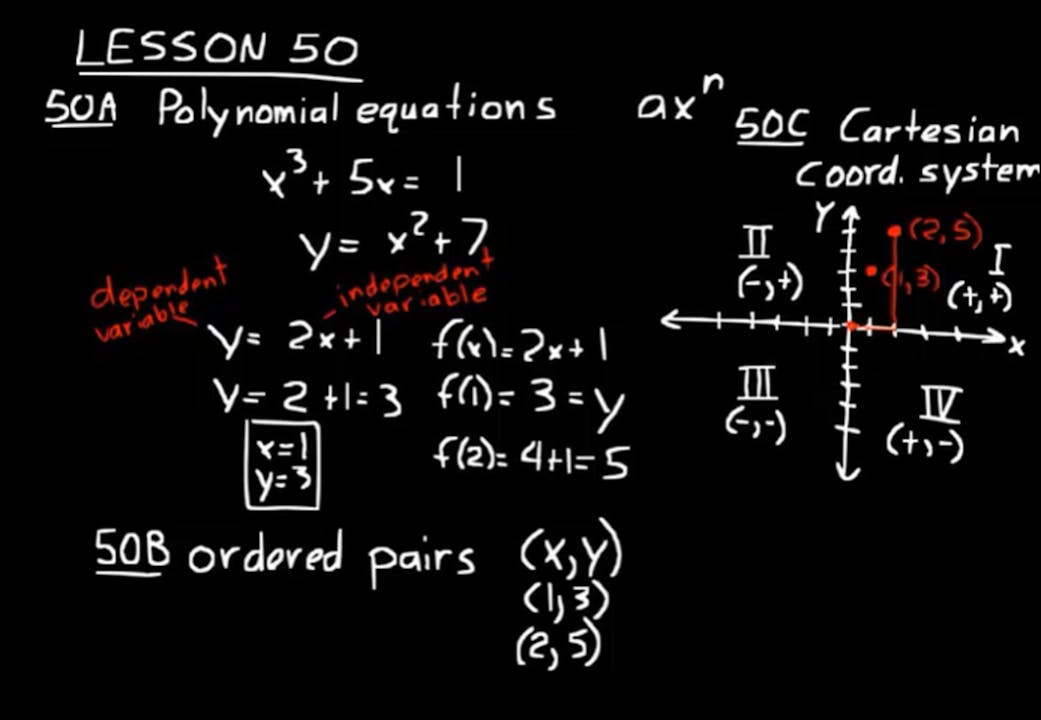 LESSON 50
50A Polynomial equations axⁿ
x³ + 5x = 1
y = x² + 7
dependent
variable
independent
variable
y = 2x + 1 f(x) = 2x + 1
y = 2 + 1 = 3 f(1) = 3 = y
x = 1
y = 3
f(2) = 4 + 1 = 5
50B ordered pairs (x, y)
(1, 3)
(2, 5)
50C Cartesian
Coord. system
Y
(2, 5)
II
(-, +)
I
(1, 3)
(+, +)
x
III
(-, -)
IV
(+, -)